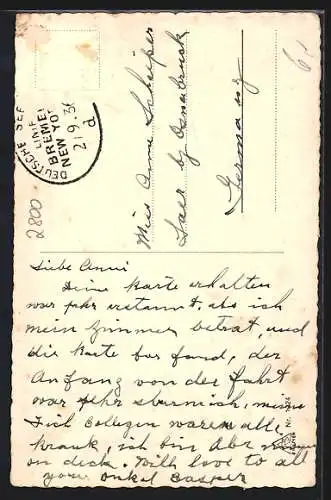 DEUTSCHE SEE
LINIE
BREMEN
NEW YO
21.9.3
d
Miss Anna Scheiper
Laer by Osnabruck
Germany
6
2800
Liebe Anni
Deine Karte erhalten
war sehr erstaunt, als ich
mein Zimmer betrat, und
die Karte vor fand, der
Anfang von der fahrt
war sehr stürmich, meine
Tisch Collegen waren alle
krank, ich bin aber
on deck. With love to all
your onkel Casper